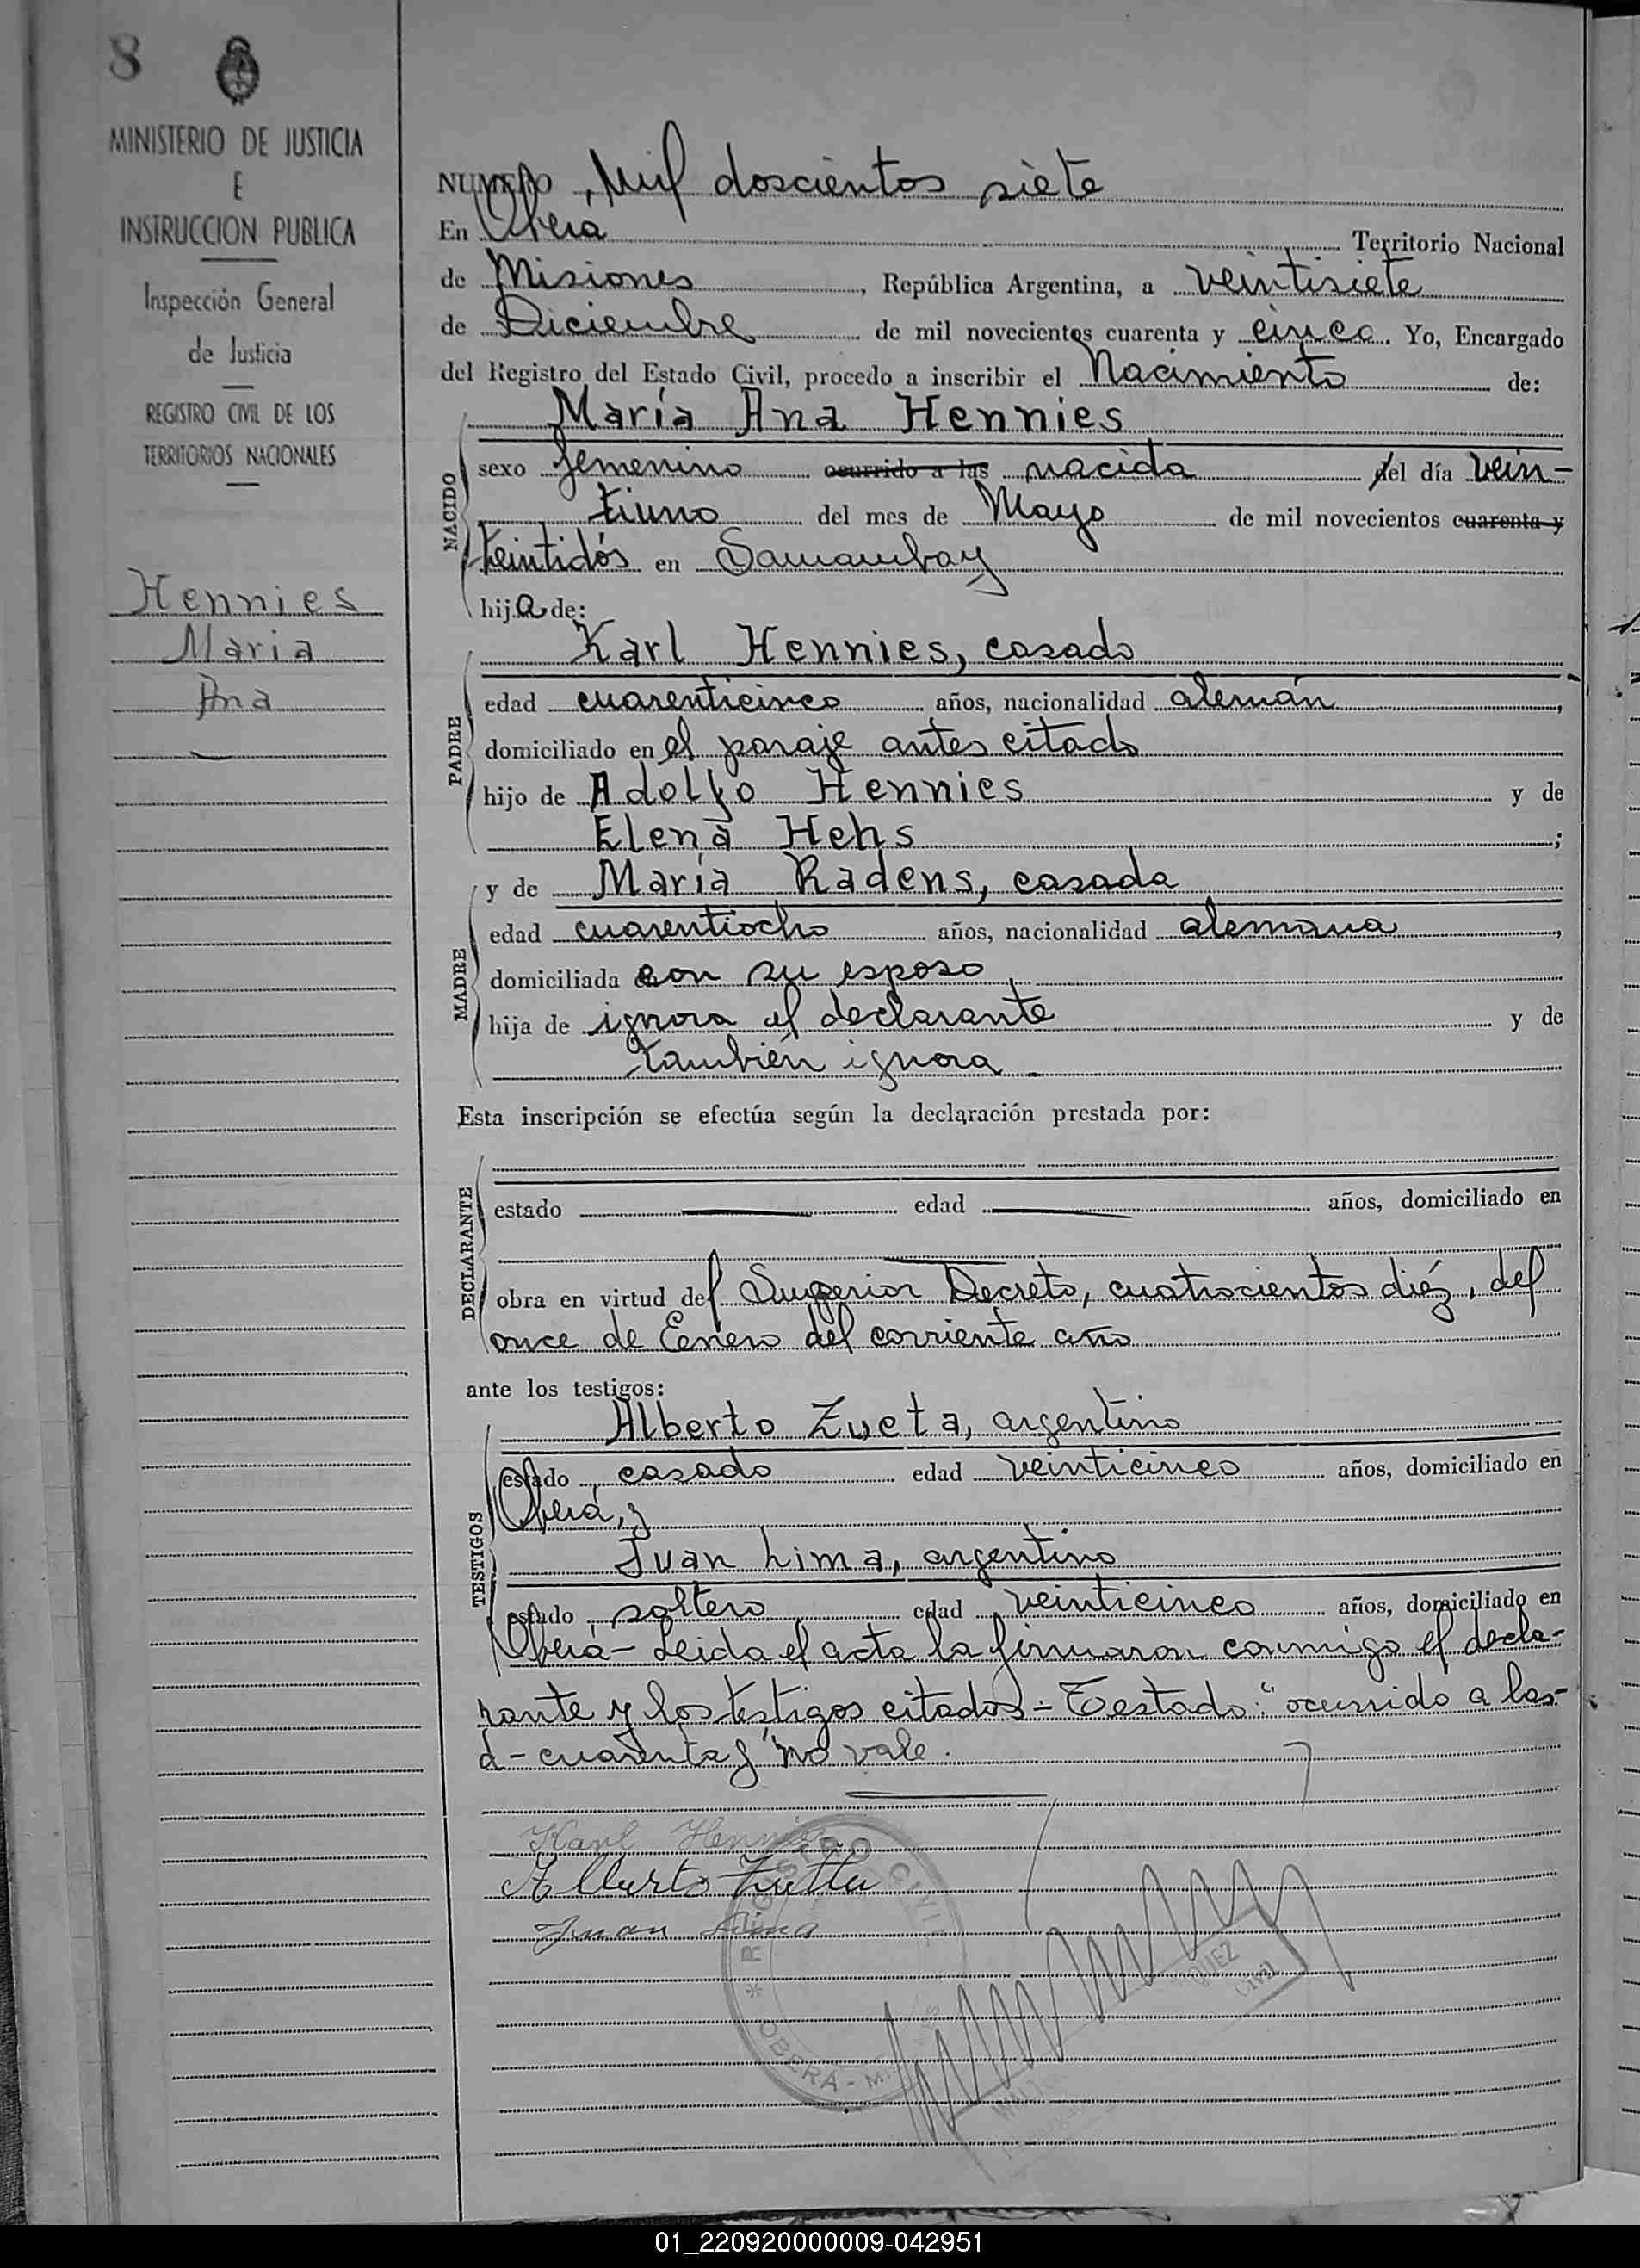 8
MINISTERIO DE JUSTICIA
E
INSTRUCCION PUBLICA
Inspección General
de Justicia
REGISTRO CIVIL DE LOS
TERRITORIOS NACIONALES
Hennies
Maria
Ana
NUMERO Mil doscientos siete
En Oberá Territorio Nacional
de Misiones, República Argentina, a veintisiete
de Diciembre de mil novecientos cuarenta y cinco. Yo, Encargado
del Registro del Estado Civil, procedo a inscribir el Nacimiento de:
María Ana Hennies
NACIDO
sexo femenino ocurrido a las nacida del día vein-
tiuno del mes de Mayo de mil novecientos cuarenta y
veintidós en Samambay
hija de:
Karl Hennies, casado
PADRE
edad cuarenticinco años, nacionalidad alemán,
domiciliado en el paraje antes citado
hijo de Adolfo Hennies y de
Elena Hehs;
y de María Radens, casada
MADRE
edad cuarentiocho años, nacionalidad alemana,
domiciliada con su esposo
hija de ignora el declarante y de
también ignora
Esta inscripción se efectúa según la declaración prestada por:
DECLARANTE
estado edad años, domiciliado en
obra en virtud del Superior Decreto, cuatrocientos diéz, del
once de Enero del corriente año
ante los testigos:
Alberto Zueta, argentino
TESTIGOS
estado casado edad veinticinco años, domiciliado en
Oberá, y
Juan Lima, argentino
estado soltero edad veinticinco años, domiciliado en
Oberá - Leida el acta la firmaron conmigo el decla-
rante y los testigos citados - Testado: "ocurrido a las-
d - cuarenta y" no vale.
Karl Hennies
Alberto Zueta
Juan Lima
REGISTRO CIVIL
OBERÁ - MISIONES
01_220920000009-042951